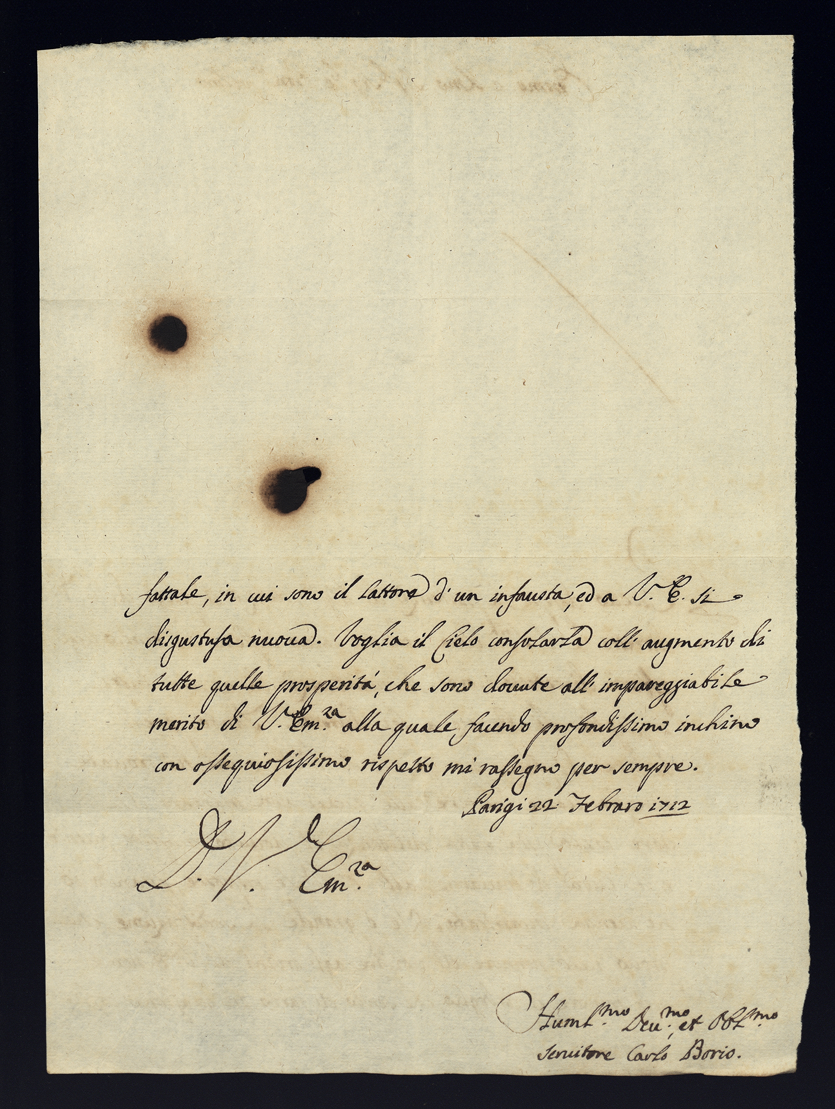 fattale, in cui sono il lattore d'un infausta, ed a V. E. si
disgustosa nuoua. Voglia il Cielo consolarla coll' augmento di
tutte quelle prosperità, che sono douute all' impareggiabile
merito di V. Em.za alla quale facendo profondissimo inchino
con ossequiosissimo rispetto mi rassegno per sempre.
Parigi 22 Febraro 1712
D. V. Em.za
Huml.mo Deu.mo, et Obl.mo
seruitore Carlo Borio.